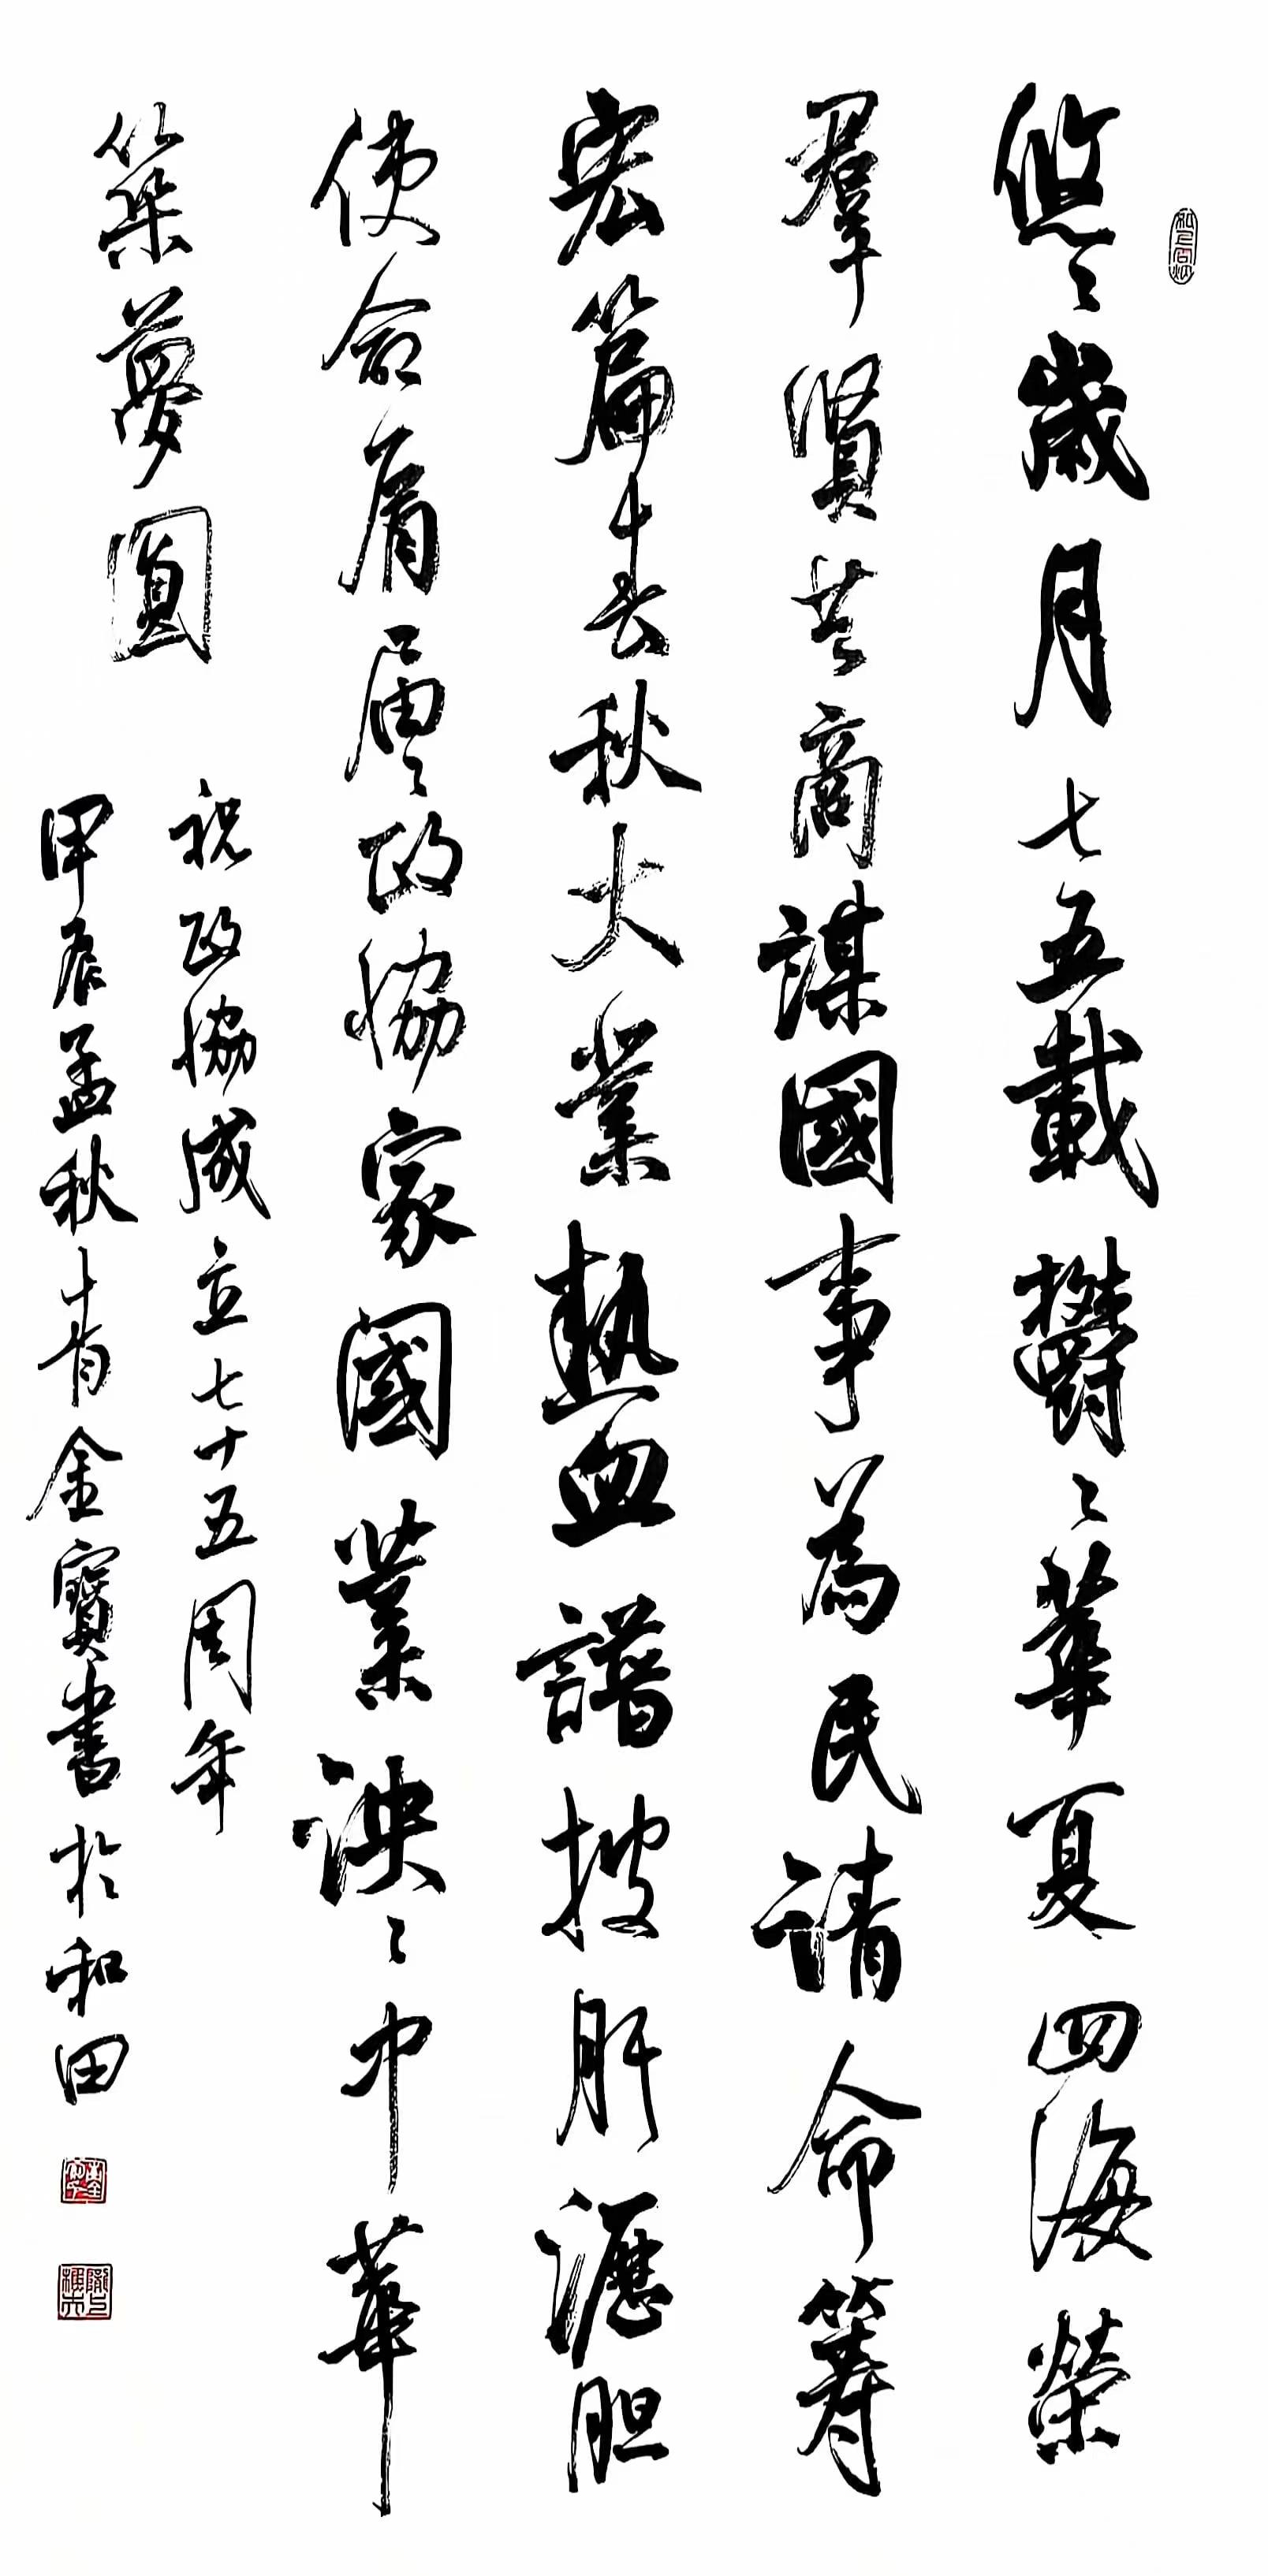 悠〻歲月七五載欝〻華夏四海榮
羣賢共商謀國事為民請命籌
宏篇春秋大業熱血譜披肝瀝胆
使命肩屢〻政協家國業泱〻中華
築夢圓
祝政協成立七十五周年
甲辰孟秋十有金寶書於和田